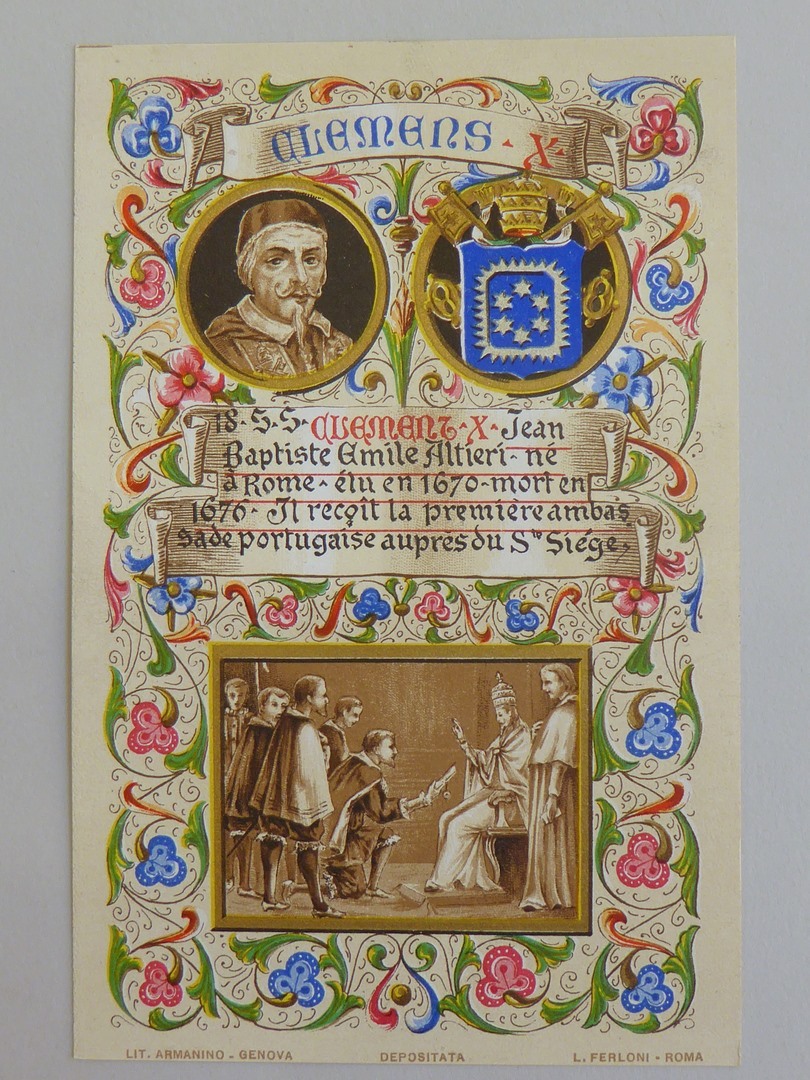 CLEMENS · X ·
18 · S · S · CLEMENT · X · Jean
Baptiste Emile Altieri - né
à Rome - élu en 1670 - mort en
1676 - Il reçoit la première ambas
sade portugaise auprès du Ste Siège.
LIT. ARMANINO - GENOVA DEPOSITATA L. FERLONI - ROMA